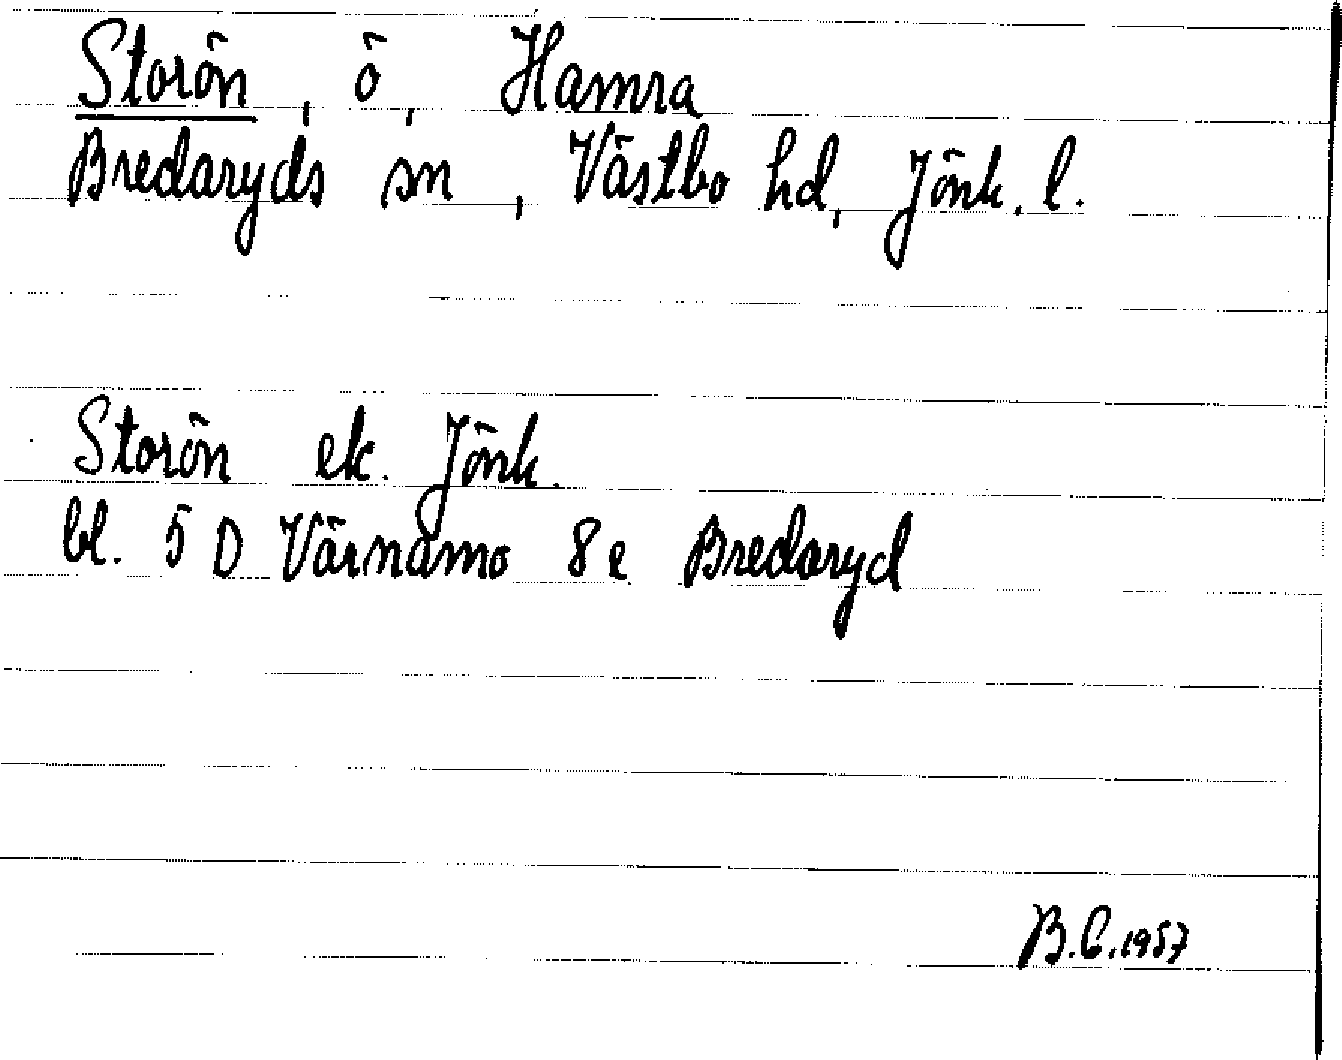 Storön, ö, Hamra
Bredaryds sn, Västbo hd, Jönk. l.
Storön ek. Jönk.
bl. 5 D Värnamo 8 e Bredaryd
B.C. 1957